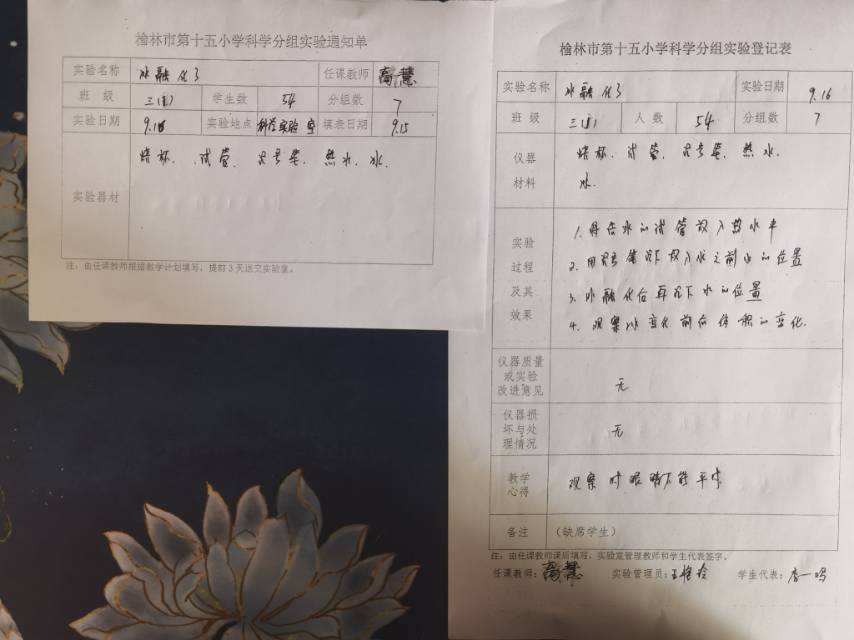 榆林市第十五小学科学分组实验通知单
实验名称 冰融化了 任课教师 高慧
班 级 三(1) 学生数 54 分组数 7
实验日期 9.16 实验地点 科学实验室 填表日期 9.15
实验器材 烧杯、试管、记号笔、热水、冰.
注:由任课教师根据教学计划填写,提前3天送交实验室。
榆林市第十五小学科学分组实验登记表
实验名称 冰融化了 实验日期 9.16
班 级 三(1) 人 数 54 分组数 7
仪器 烧杯、试管、记号笔、热水.
材料 冰.
实验 1. 将 水的试管放入热水中
过程 2. 用记号笔记下放入冰之前水的位置
及其 3. 冰融化后再记下水的位置
效果 4. 观察冰变化前后体积的变化.
仪器质量
或实验 无
改进意见
仪器损
坏与处 无
理情况
教学 观察时眼睛 平
心得
备注 (缺席学生)
注:由任课教师课后填写,实验室管理教师和学生代表签字。
任课教师:高慧 实验管理员:王 学生代表:李一鸣